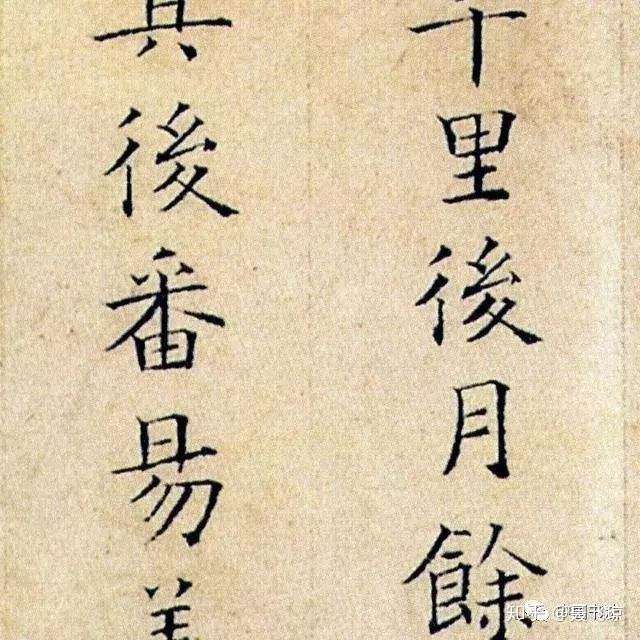 千里後月餘
其後番昜
知乎